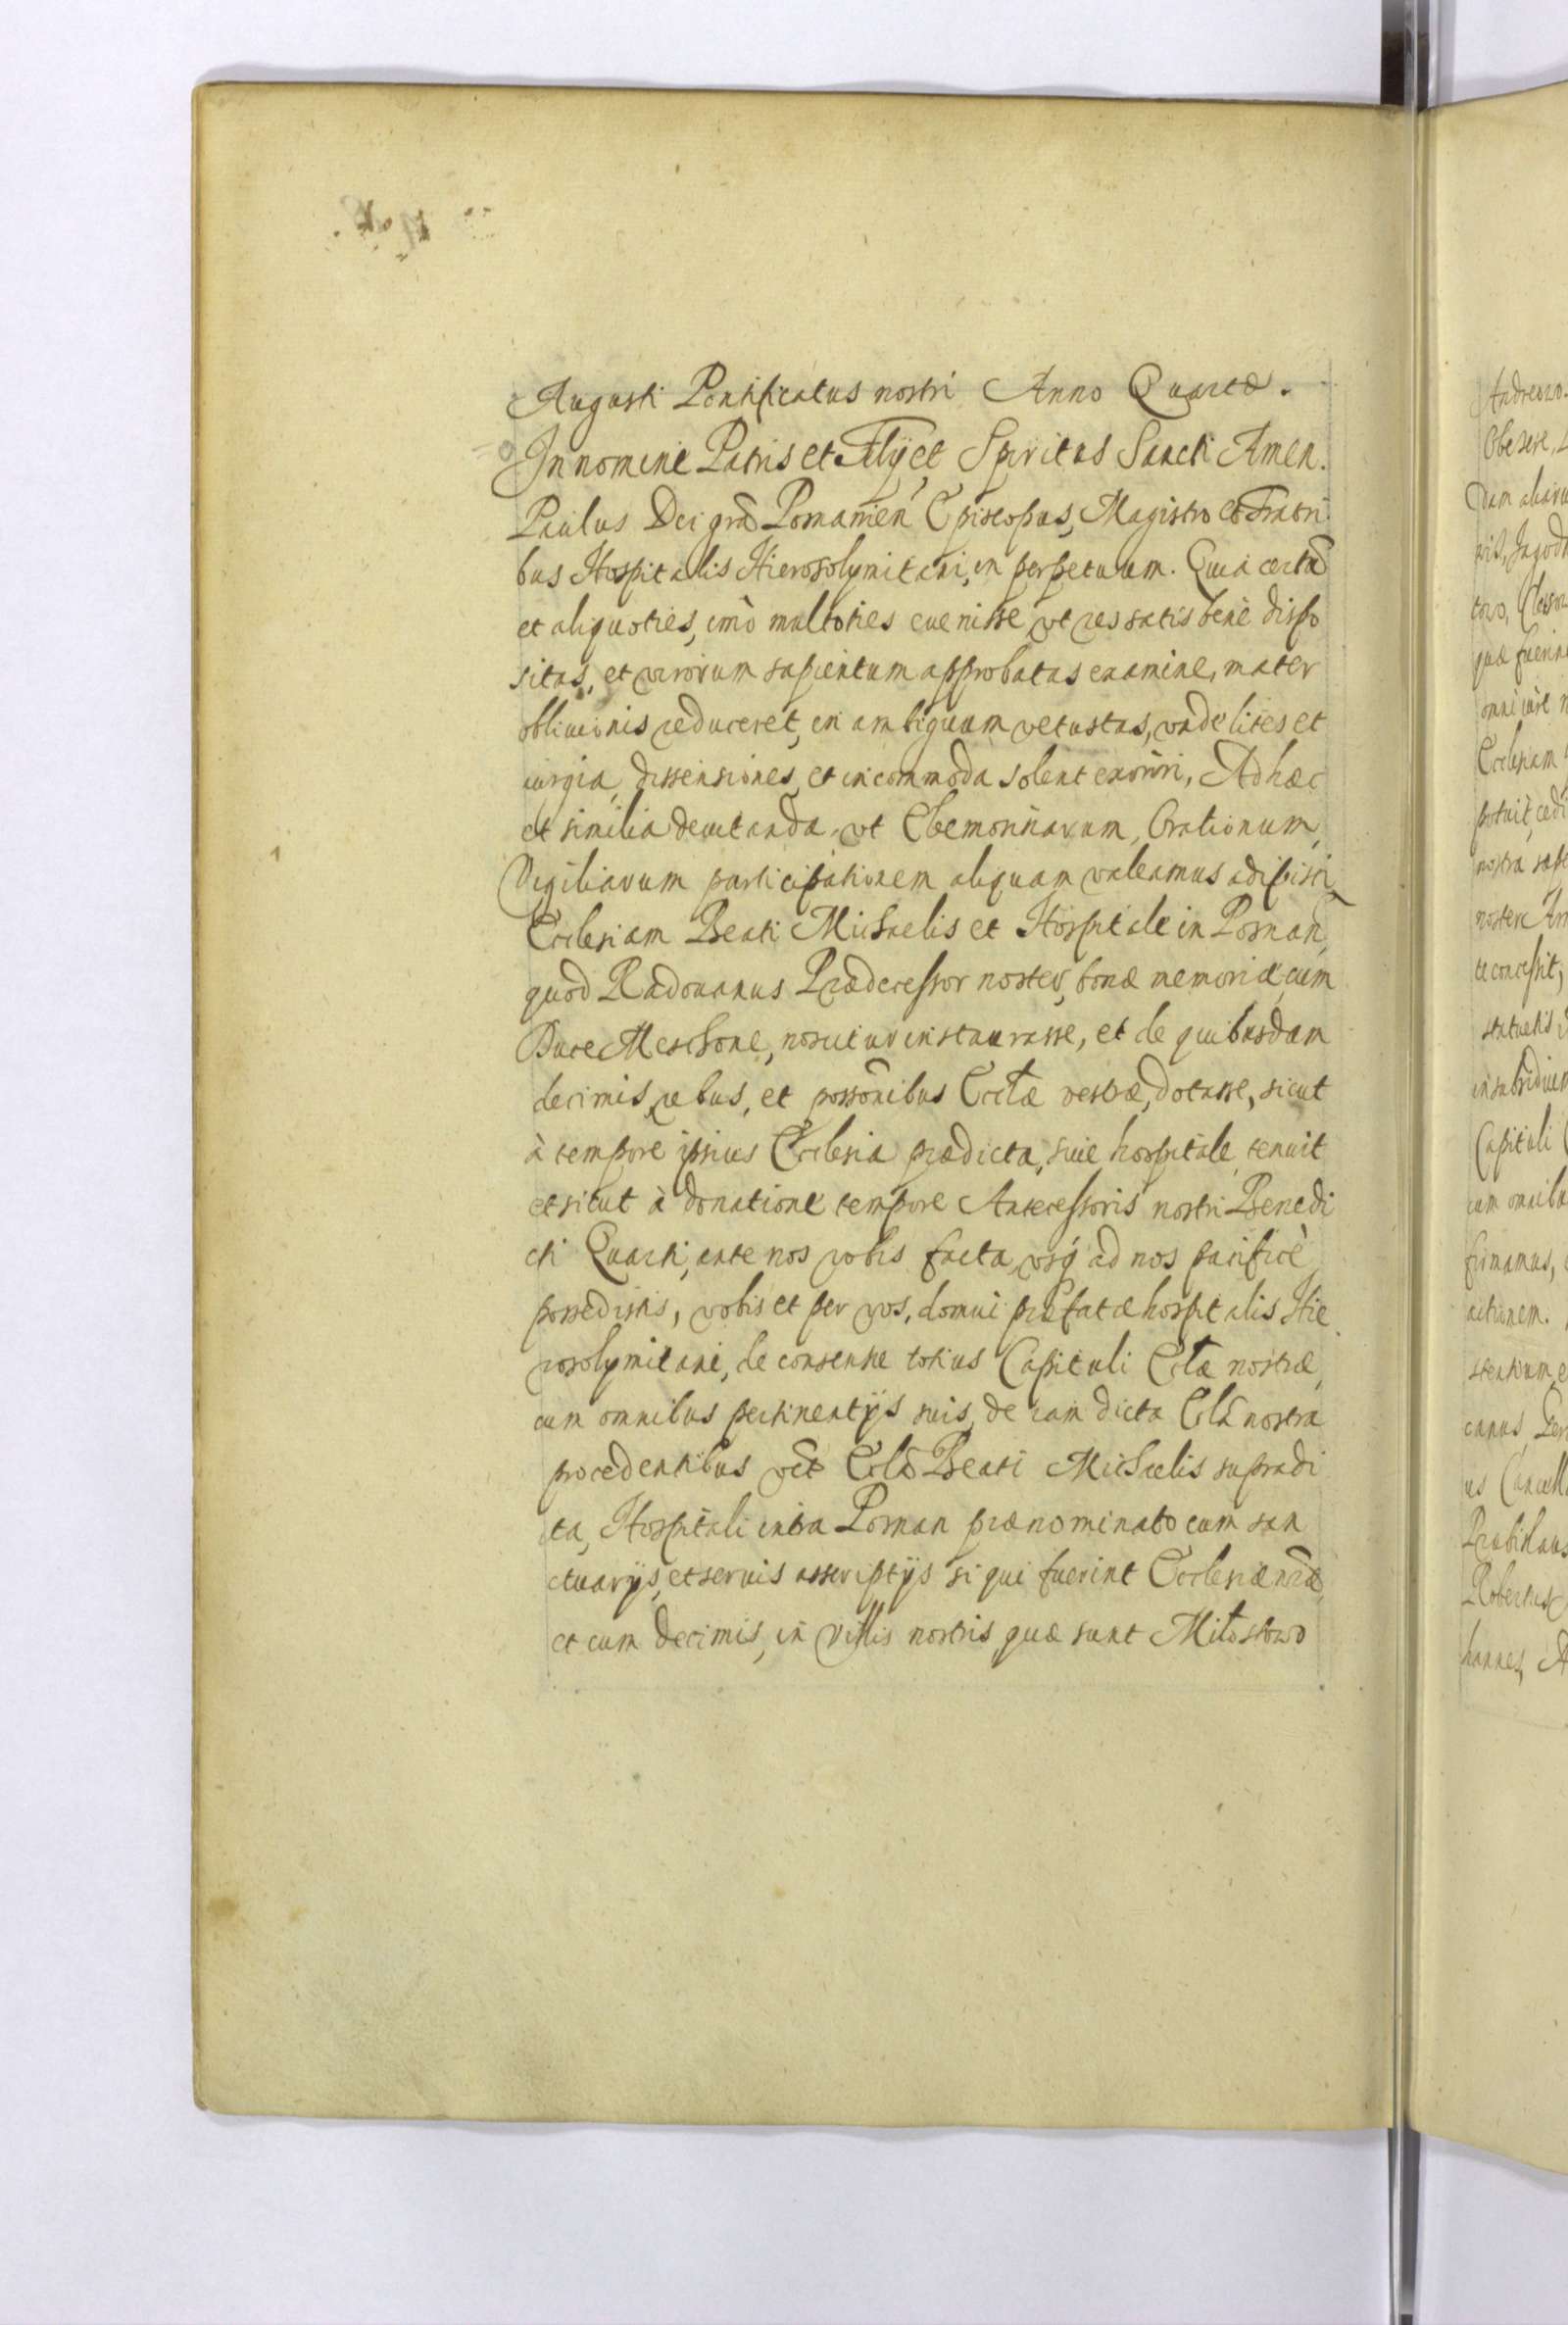 Augusti Pontificatus nostri Anno Quarto.
In nomine Patris et Filij et Spiritus Sancti Amen.
Paulus Dei grã Posnanien Episcopus, Magistro et Fratri
bus Hospitalis Hierosolymitani, in perpetuum. Quia certũ
et aliquoties, imò multoties euenisse, vt res satis benè dispo
sitas, et virorum sapientum approbatas examine, mater
obliuionis reduceret, in ambiguum vetustas, vnde lites et
iurgia, dissensiones, et incommoda solent exoriri, Ad hæc
et similia deuitanda, vt Elemosinarum, Orationum,
Vigiliarum participationem aliquam valeamus adipisci,
Ecclesiam Beati Michaelis et Hospitale in Posnan,
quod Radouanus Prædecessor noster, bonæ memoriæ, cum
Duce Meschone, noscitur instaurasse, et de quibusdam
decimis, rebus, et possõnibus Eccłæ nestræ, dotasse, sicut
à tempore ipsius Ecclesia prædicta, siue hospitale, tenuit
et sicut à donatione tempore Antecessoris nostri Benedi
cti Quarti, ante nos vobis facta, vsq ad nos pacificè
possedistis, vobis et per vos, domui præfatæ hospitalis Hie
rosolymitani, de consensu totius Capituli Ecłæ nostræ,
cum omnibus pertinentijs suis, de iam dicta Eclã nostra
procedentibus vct Eclã Beati Michaelis supradi
cta, Hospitali intra Posnan prænominato cum san
ctuarijs, et seruis asscriptijs si qui fuerint Ecclesiæ nræ,
et cum decimis, in villis nostris, quæ sunt Miłostowo
Andreowo
dam aliaru
quæ fuerint
omni iure n
Ecclesiam
potuit, cedi
nostra
te concessit,
Capituli
cum omnibu
firmamus,
actionem.
canus,
us Cancell
Robertus
hannes, A
1